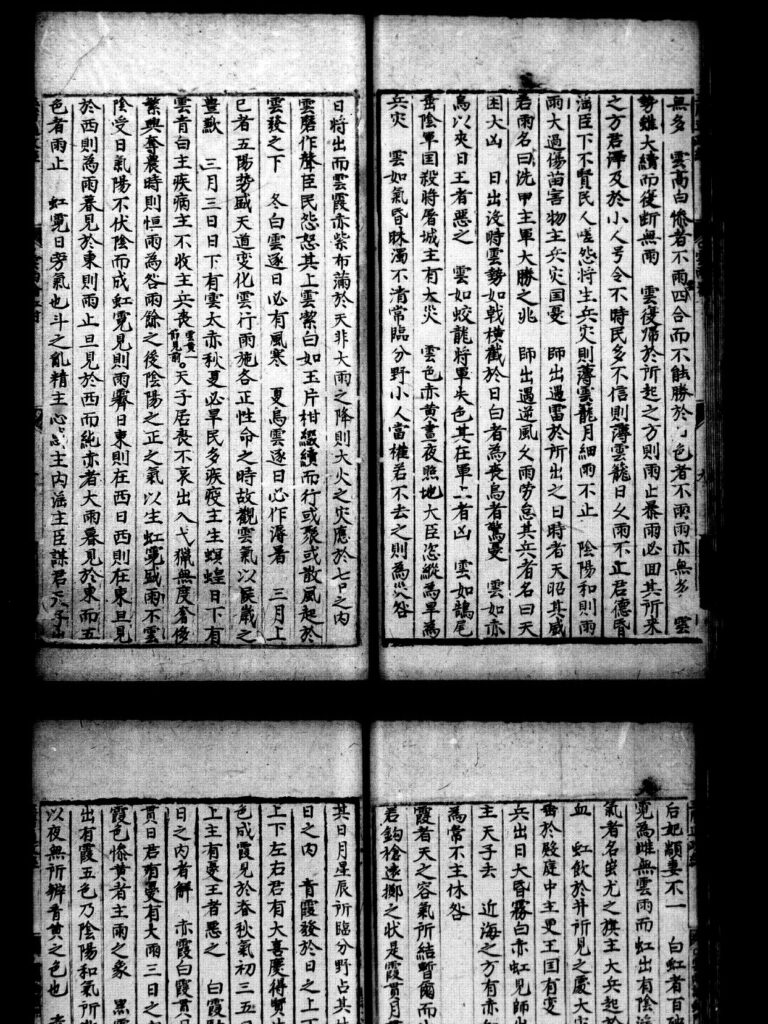 無多　雲高白慘者不雨四合而不蝕勝於　色者不雨雨亦無多　雲
勢雖大續而復斷無雨　雲復歸於所起之方則雨止暴雨必回其所來
之方君澤及於小人号令不時民多不信則薄雲籠日久雨不止君德昏
滛臣下不賢民人嗟怨將生兵灾則薄雲籠月細雨不止　陰陽和則雨
雨大過傷苗害物主兵灾国憂　師出遇雷於所出之日時者天昭其威
若雨名曰洗甲主軍大勝之兆　師出遇逆風久雨勞怠其兵者名曰天
困大凶　日出沒時雲勢如戟橫截於日白者為喪烏者驚憂　雲如赤
烏以夾日王者惡之　雲如蛟龍將軍失色其在軍上者凶　雲如鵲尾
垂陰軍国殺將屠城主有大災　雲色赤黄晝夜照地大臣恣縱為旱為
兵灾　雲如氣昏昧濁不清常臨分野小人當權若不去之則為災咎
日將出而雲霞赤紫布滿於天非大雨之降則大火之灾應於七日之內
雲磨作聲臣民怨怒其上雲潔白如玉片相綴續而行或聚或散風起於
雲發之下　冬白雲逐日必有風寒　夏烏雲逐日必作溽暑　三月上
巳者五陽势盛天道变化雲行雨施各正性命之時故觀雲氣以候歲之
豊歉　三月三日日下有雲太赤秋夏必旱民多疾疫主生螟蝗日下有
雲青白主疾病主不收主兵喪雲黄前見前。天子居喪不哀出入弋獵無度奢侈
業興奪農時則恒雨為咎雨餘之後陰陽之正之氣以生虹霓盛雨不雲
陰受日氣陽不伏陰而成虹霓見則雨霽日東則在西日西則在東旦見
於西則為雨暮見於東則雨止旦見於西而純赤者大雨暮見於東而五
色者雨止　虹霓日旁氣也斗之亂精主心惑主內滛主臣謀君天子
后妃顓妻不一　白虹者百
霓為雌無雲雨而虹出有陰
氣者名蚩尤之旗主大兵起
血　虹飲於井所見之處大
垂於殿庭中主更王国有变
兵出日大昏霧白赤虹見師出
主天子去　近海之方有赤
為常不主休咎
霞者天之容氣所結暫爾而
若鈎槍遠擲之状是霞貫月
其日月星辰所臨分野占其
日之內　青霞發於日之上下
上下左右君有大喜慶得賢
色成霞見於春秋氣初三五日
上主有憂王者惡之　白霞
日之內者解　赤霞白霞貫日
貫日君有憂有大雨三日之
霞色慘黄者主雨之象　黒雲
出有霞五色乃陰陽和氣所
以夜無所辨青黄之色也